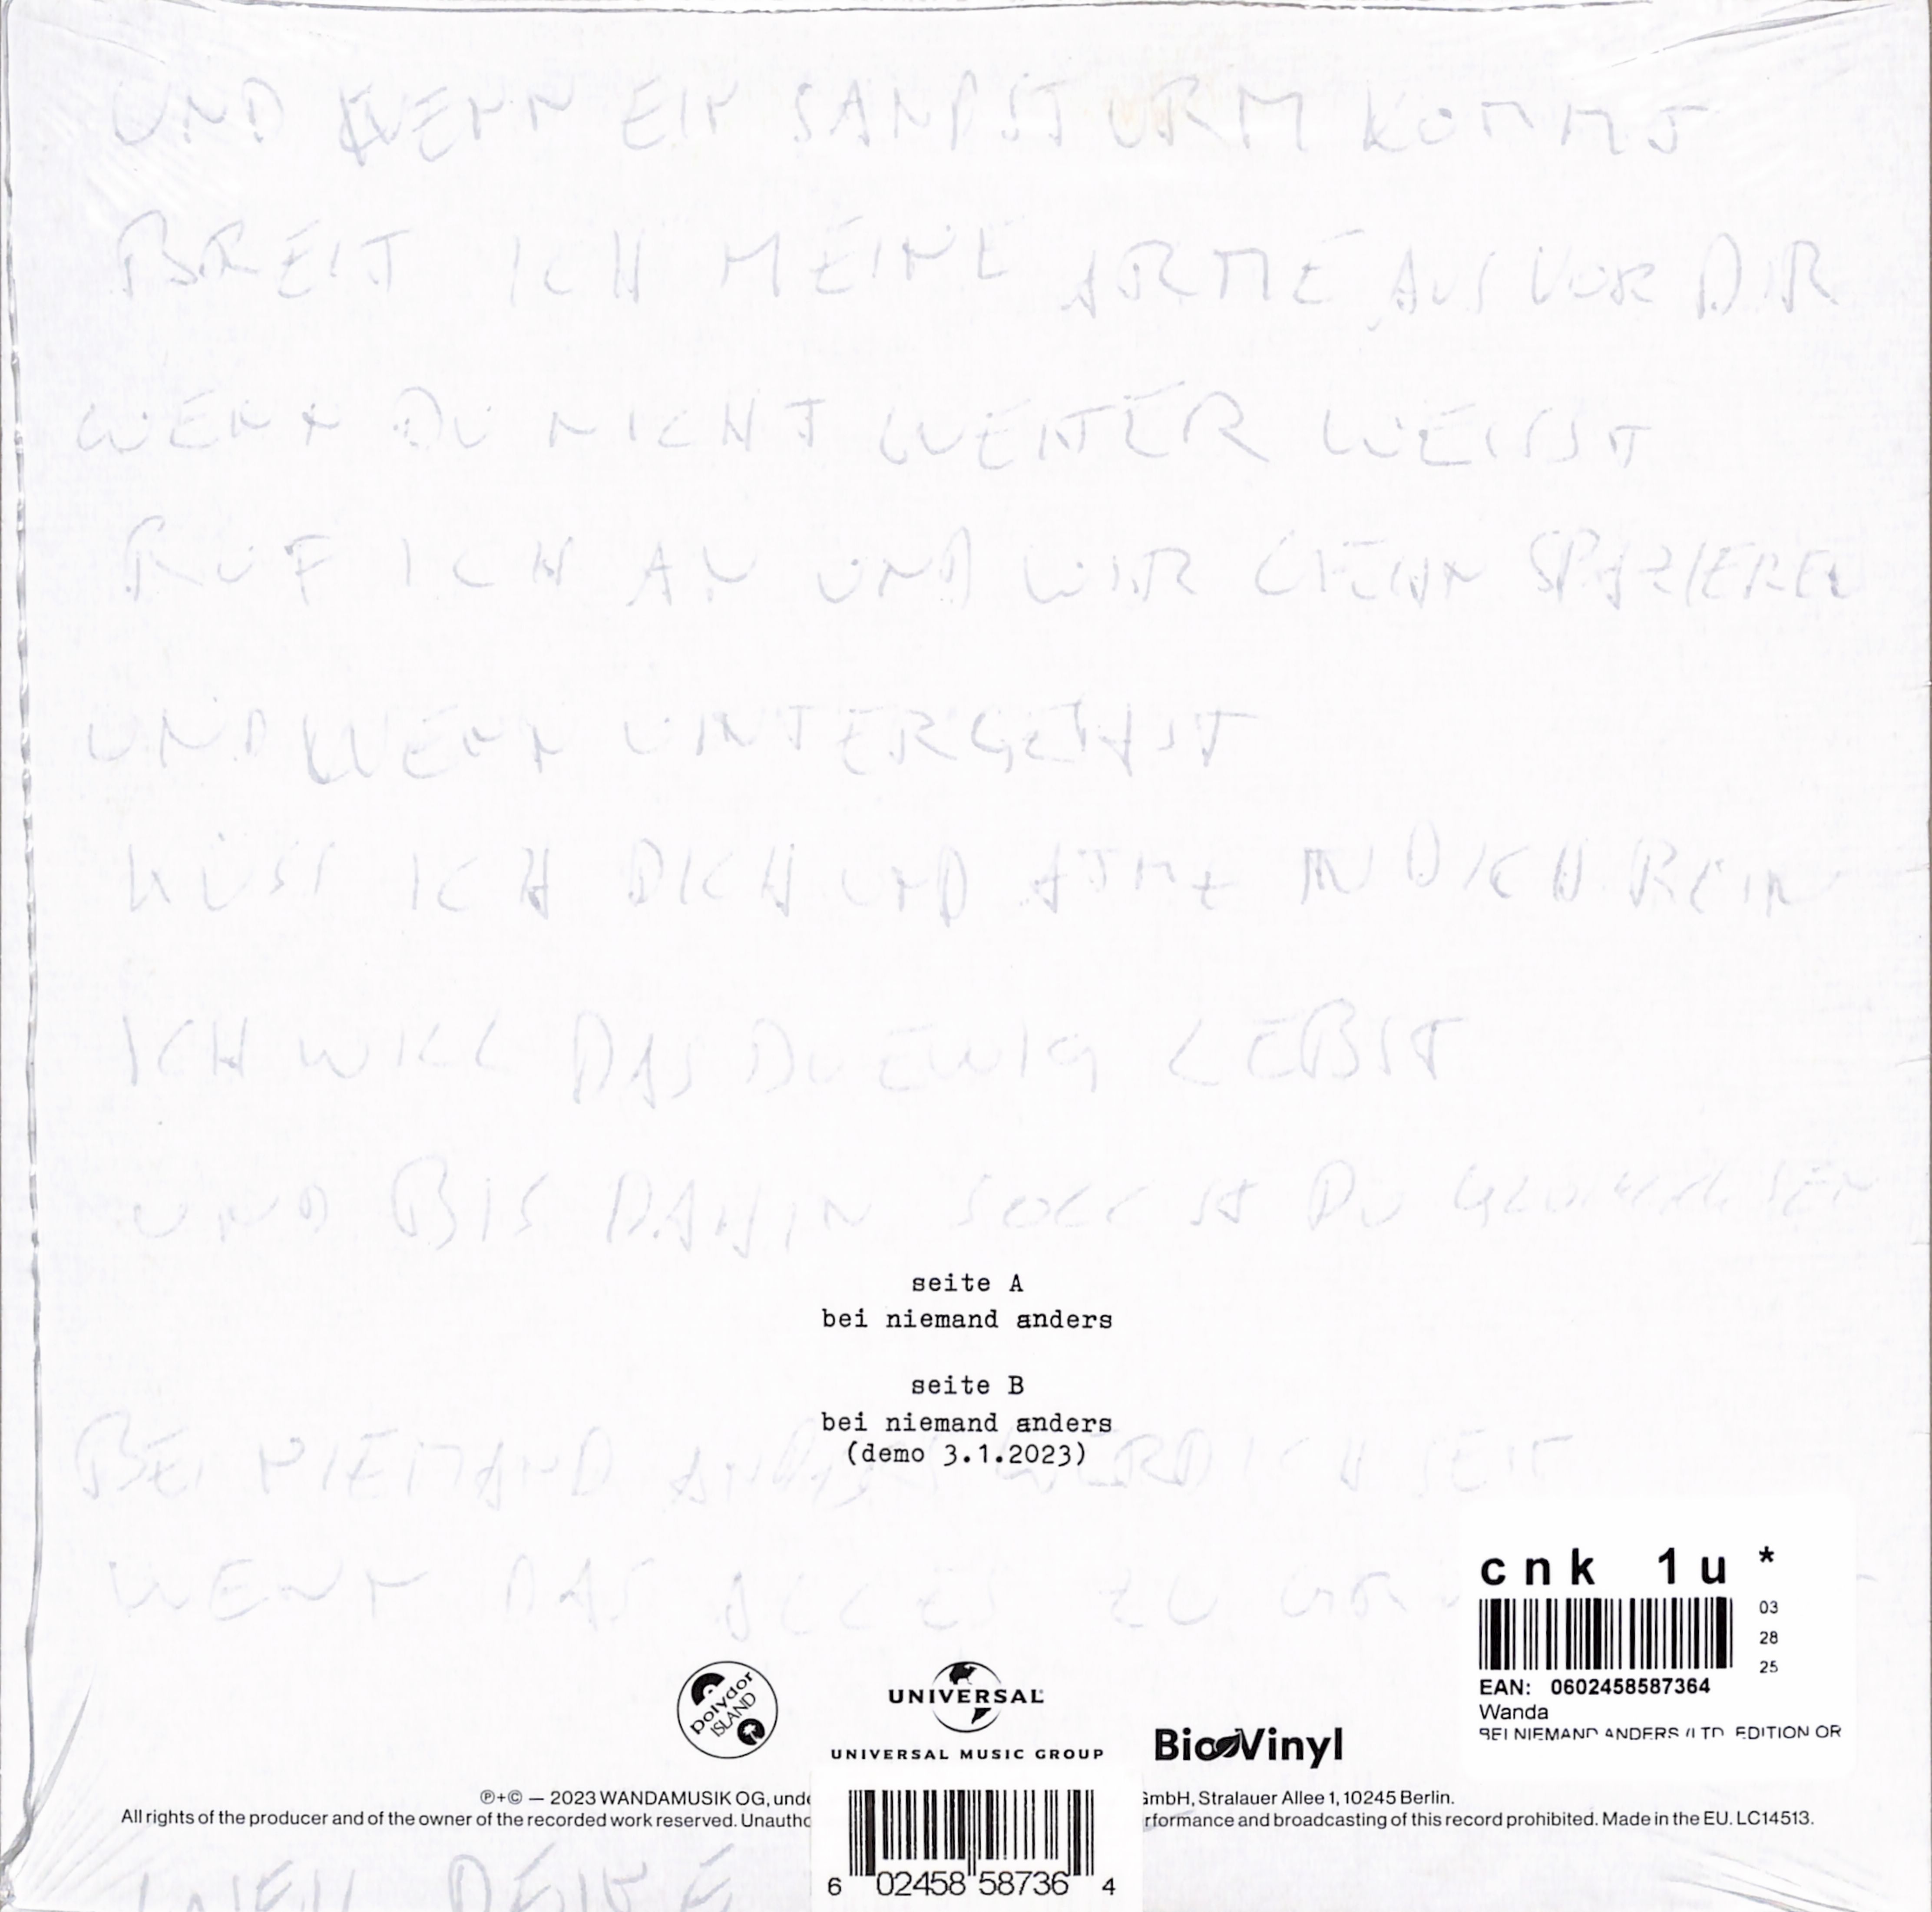 UND WENN EIN SANDSTURM KOMMT
BREIT ICH MEINE ARME AUS VOR DIR
WENN DU NICHT WEITER WEISST
RUF ICH AN UND WIR GEHN SPAZIEREN
UND WENN UNTERGEHST
KÜSS ICH DICH UND ATME IN DICH REIN
ICH WILL DAS DU EWIG LEBST
UND BIS DAHIN SOLLST DU
seite A
bei niemand anders
seite B
bei niemand anders
(demo 3.1.2023)
BEI NIEMAND ANDERS WERD ICH SEIT
WENN DAS ALLES ZU
cnk 1u *
03
28
25
EAN: 0602458587364
Wanda
BEI NIEMAND ANDERS (LTD. EDITION OR
polydor
ISLAND
UNIVERSAL
UNIVERSAL MUSIC GROUP
BioVinyl
℗+© — 2023 WANDAMUSIK OG, unde
GmbH, Stralauer Allee 1, 10245 Berlin.
All rights of the producer and of the owner of the recorded work reserved. Unautho
rformance and broadcasting of this record prohibited. Made in the EU. LC14513.
6 02458 58736 4
WEIL DEINE